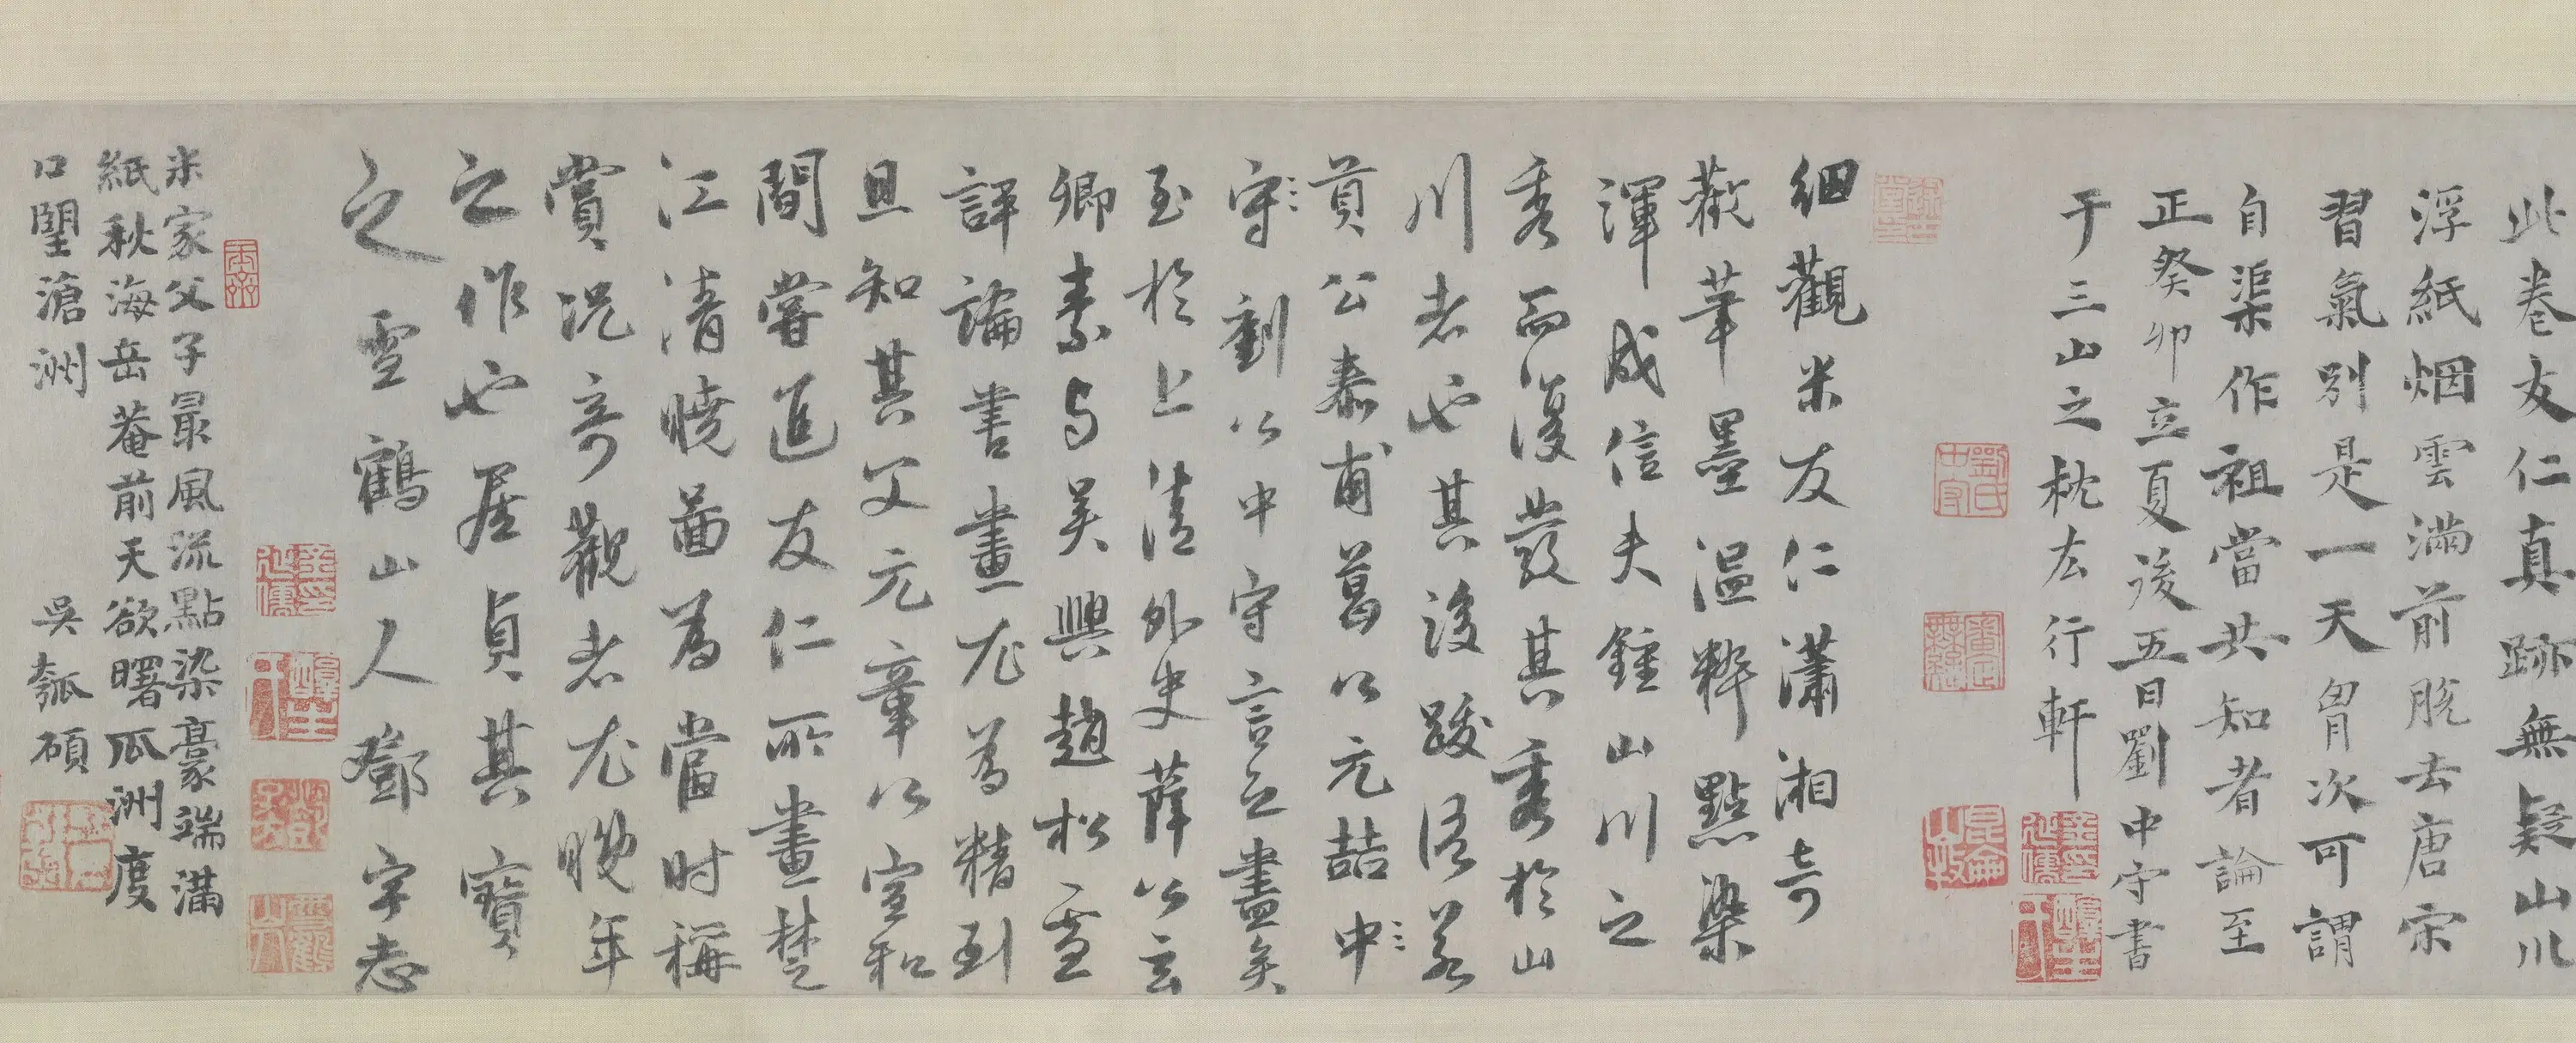 此卷友仁真跡無疑山川
浮紙烟雲滿前脫去唐宋
習氣別是一天胷次可謂
自渠作祖當共知者論至
正癸卯立夏後五日劉中守書
于三山之枕左行軒
細觀米友仁瀟湘奇
觀筆墨溫粹點染
渾成信夫鍾山川之
秀而復發其秀於山
川者也其後跋語若
貢公泰甫葛公元喆中
守劉公中守言之盡矣
至於上清外史薛公玄
卿素與吳興趙松雪
評論書畫尤為精到
且知其父元章以宣和
間嘗進友仁所畫楚
江清曉圖為當时稱
賞況奇觀者尤晚年
之作也居貞其寶
之雲鶴山人鄧宇志
米家父子最風流點染豪端滿
紙秋海岳菴前天欲曙瓜洲度
口望滄洲 吳瓠碩